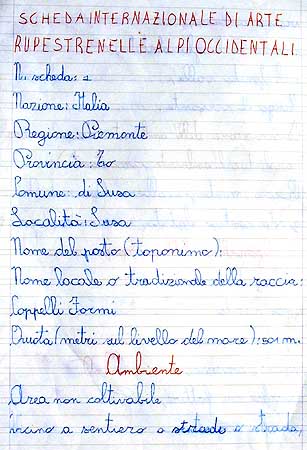 SCHEDA INTERNAZIONALE DI ARTE
RUPESTRE NELLE ALPI OCCIDENTALI.
N. scheda: 1
Nazione: Italia
Regione: Piemonte
Provincia: To
Comune: di Susa
Località: Susa
Nome del posto (toponimo):
Nome locale o tradizionale della roccia:
Coppelle Formi
Quota (metri sul livello del mare): 501 m.
Ambiente
Area non coltivabile
vicino a sentiero o strade o strada,